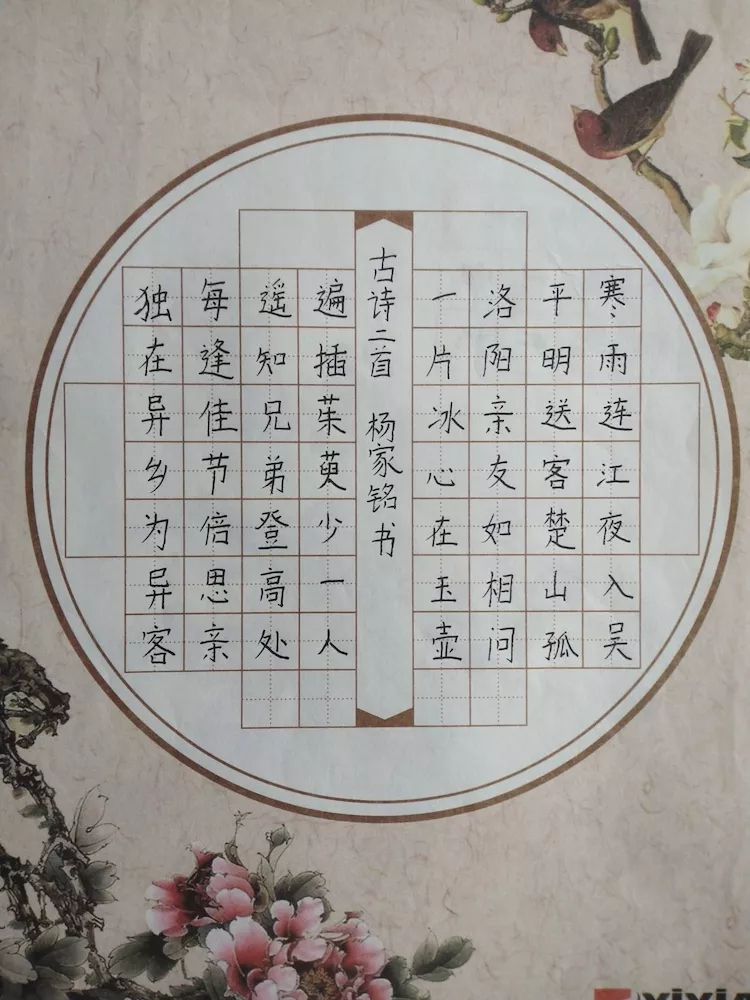 寒雨连江夜入吴
平明送客楚山孤
洛阳亲友如相问
一片冰心在玉壶
古诗二首 杨家铭书
遍插茱萸少一人
遥知兄弟登高处
每逢佳节倍思亲
独在异乡为异客